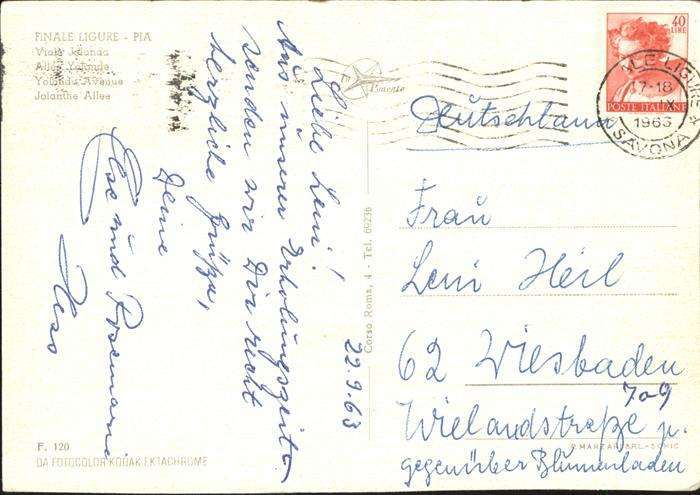 FINALE LIGURE - PIA
Viale Jolanda
Allée Yolande
Yolanda Avenue
Jolanthe Allee
Liebe Leni!
Aus unserer Erholungszeit
senden wir Dir recht
herzliche Grüße,
Deine
Else und Rosemarie
Hess
22.9.63
Corso Roma, 4 - Tel. 69236
F. 120
DA FOTOCOLOR KODAK EKTACHROME
40
LIRE
POSTE ITALIANE
LIGURE
17-18
1963
SAVONA
Deutschland
Frau
Leni Heil
62 Wiesbaden
Wielandstraße
gegenüber Blumenladen